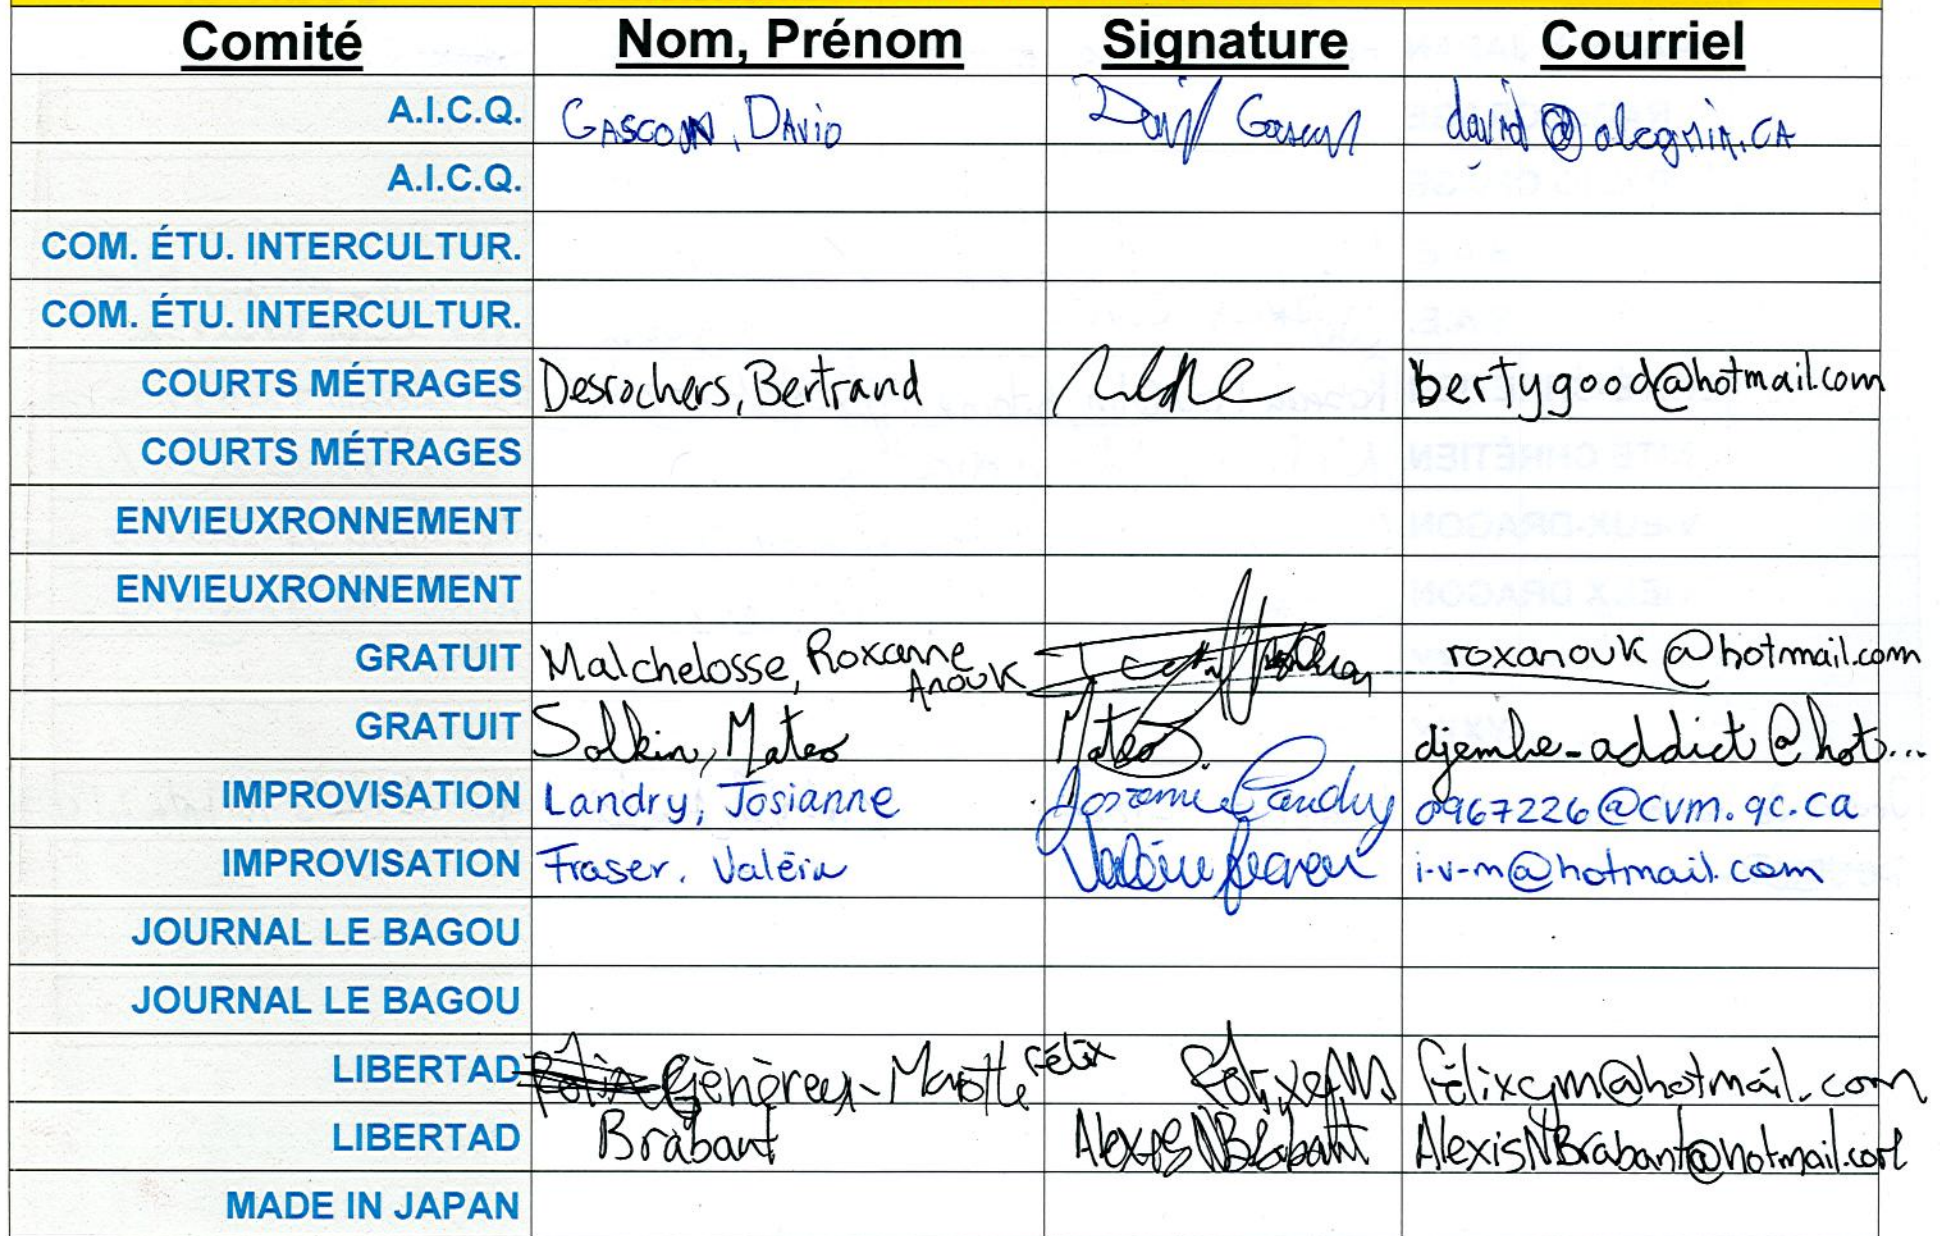 Comité Nom, Prénom Signature Courriel
A.I.C.Q. GASCON, DAVID
A.I.C.Q.
COM. ÉTU. INTERCULTUR.
COM. ÉTU. INTERCULTUR.
COURTS MÉTRAGES Desrochers, Bertrand bertygood@hotmail.com
COURTS MÉTRAGES
ENVIEUXRONNEMENT
ENVIEUXRONNEMENT
GRATUIT Malchelosse, Roxanne Anouk roxanouk@hotmail.com
GRATUIT Solkin, Mateo Mateo S. djembe-addict@hot...
IMPROVISATION Landry, Josianne Josianne Landry 0967226@cvm.qc.ca
IMPROVISATION Fraser, Valérie Valérie Fraser i-v-m@hotmail.com
JOURNAL LE BAGOU
JOURNAL LE BAGOU
LIBERTAD Génereux-Marotte Félix félixgm@hotmail.com
LIBERTAD Brabant AlexisNBrabant AlexisNBrabant@hotmail.com
MADE IN JAPAN